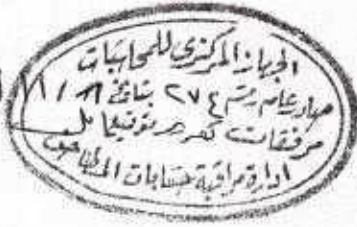 الجهاز المركزى للمحاسبات
صادر عام رقم ٢٧٤ بتاريخ
مرفقات
ادارة مراقبة حسابات المطاحن